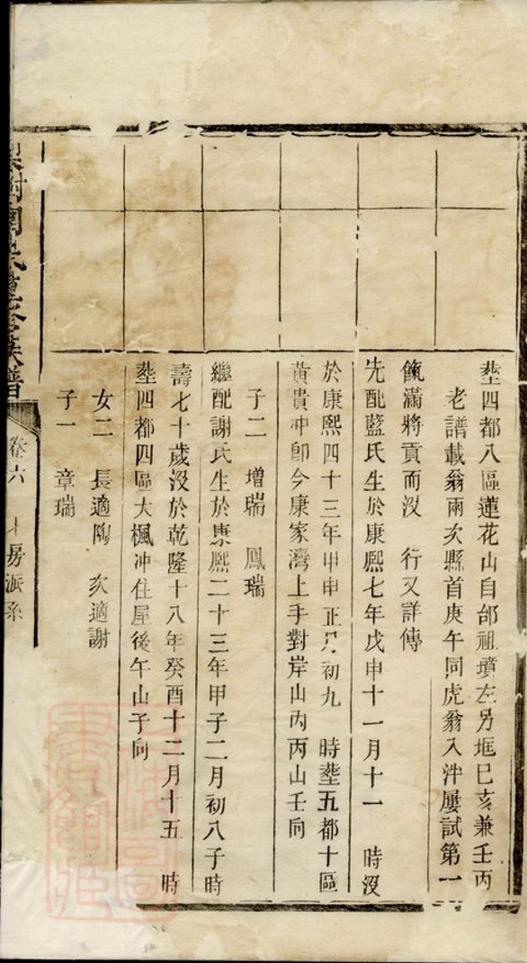 塟四都八區蓮花山自邰祖墳左另堆巳亥兼壬丙
老譜載翁兩次縣首庚午同虎翁入泮屢試第一
餼滿將貢而沒　行又詳傳
先配藍氏生於康熙七年戊申十一月十一　時沒
於康熙四十三年甲申正月初九　時塟五都十區
黃貴冲卽今康家灣上手對岸山內丙山壬向
子二　增瑞　鳳瑞
繼配謝氏生於康熙二十三年甲子二月初八子時
壽七十歲沒於乾隆十八年癸酉十二月十五　時
塟四都四區大楓冲住屋後午山子向
女二　長適陶　次適謝
子一　章瑞
氏　修族譜
卷六　房派系